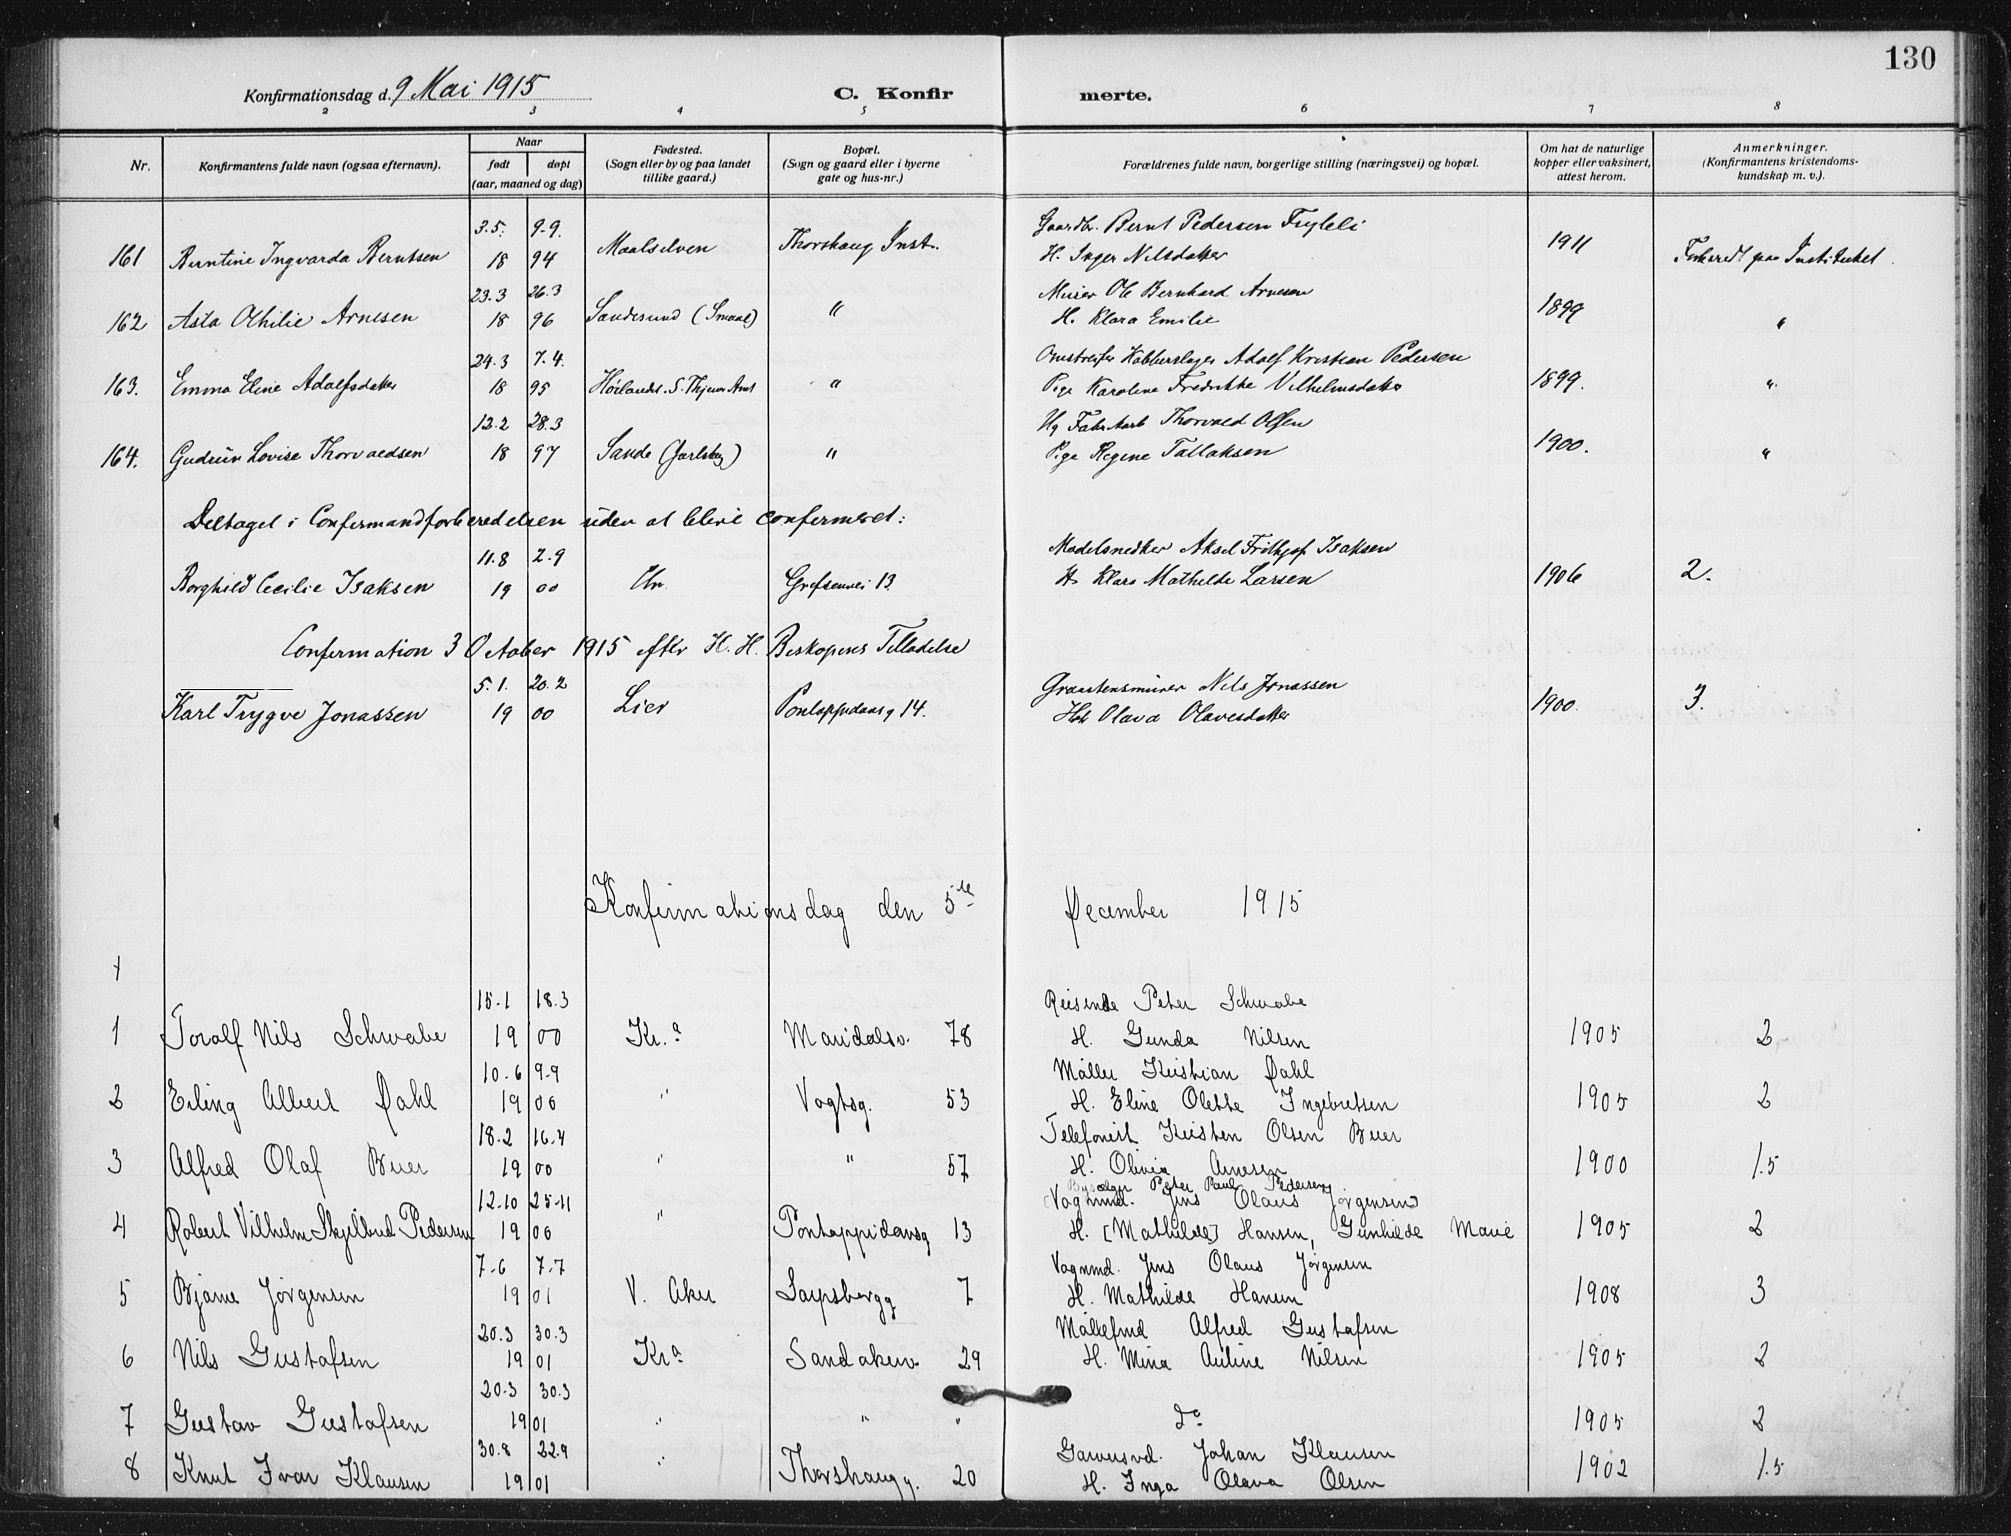 130
Konfirmationsdag d. 9 Mai 1915 C. Konfirmerte.
2 3 4 5 6 7 8
Nr. Konfirmantens fulde navn (ogsaa efternavn). Naar født døpt (aar, maaned og dag) Fødested. (Sogn eller by og paa landet tillike gaard.) Bopæl. (Sogn og gaard eller i byerne gate og hus-nr.) Forældrenes fulde navn, borgerlige stilling (næringsvei) og bopæl. Om hat de naturlige kopper eller vaksinert, attest herom. Anmerkninger. (Konfirmantens kristendoms-kundskap m. v.).
3.5. 9.9. Gaardbr. Bernt Pedersen
161 Berntine Ingvarda Berntsen 18 94 Maalselven Thorshaug Inst. H. Inger Nilsdatter 1911 Forberedt paa Institutet.
23.3 26.3 Murer Ole Bernhard Arnesen
162 Asta Othilie Arnesen 18 96 Sandesund (Smaal) " H. Klara Emilie 1899 "
24.3 7.4. Omstreifer Kobberslager Adolf Kristian Pedersen
163. Emma Eline Adolfsdatter 18 95 Høilandet. " Pige Karoline Fredrikke Vilhelmsdatter 1899. "
12.2 28.3 Ug Fabr.Arb Thorvald Olsen
164. Gudrun Lovise Thorvaldsen 18 97 Sande (Jarlsbg) " Pige Regine Tallaksen 1900. "
Deltaget i Confirmandforberedelsen uden at blive confirmeret:
11.8 2.9 Modelsnedker Aksel Frithjof Isaksen
Borghild Cecilie Isaksen 19 00 Chr. Grefsenvei 13 H. Klara Mathilde Larsen 1906 2.
Confirmation 3 October 1915 efter H. H. Biskopens Tilladelse
5.1. 20.2 Graastensmurer Nils Jonassen
Karl Trygve Jonassen 19 00 Lier Pontoppidansg 14. Olava Olavesdatter 1900. 3.
Konfirmationsdag den 5te December 1915
15.1 18.3 Reisende Peter Schwabe
1 Toralf Nils Schwabe 19 00 Kr.a Maridalsv. 78 H. Gunda Nilsen 1905 2
10.6 9.9 Møller Kristian Dahl
2 Erling Albert Dahl 19 00 " Vogtsg. 53 H. Eline Olette Ingebretsen 1905 2
18.2 16.4 Telefonist Kristen Olsen Buer
3 Alfred Olaf Buer 19 00 " " 57 H. Olivia Arnesen 1900 1.5
Peter Paul Pedersen
12.10 25.11 Vognmd. Jens Olaus Jørgensen
4 Robert Vilhelm Skjelbred Pedersen 19 00 " Pontoppidansg 13 H. [Mathilde] Hansen, Gunhilde Marie 1905 2
7.6 7.7 Vognmd. Jens Olaus Jørgensen
5 Bjarne Jørgensen 19 01 V. Aker Sarpsborgg 7 H. Mathilde Hansen 1908 3
20.3 30.3 Alfred Gustafsen
6 Nils Gustafsen 19 01 Kra Sandakerv. 29 H. Mina Auline Nilsen 1905 2
20.3 30.3
7 Gustav Gustafsen 19 01 " " " Do 1905 2
30.8 22.9 Johan Klausen
8 Knut Ivar Klausen 19 01 " Thorshaugg. 20 H. Inga Olava Olsen 1902 1.5